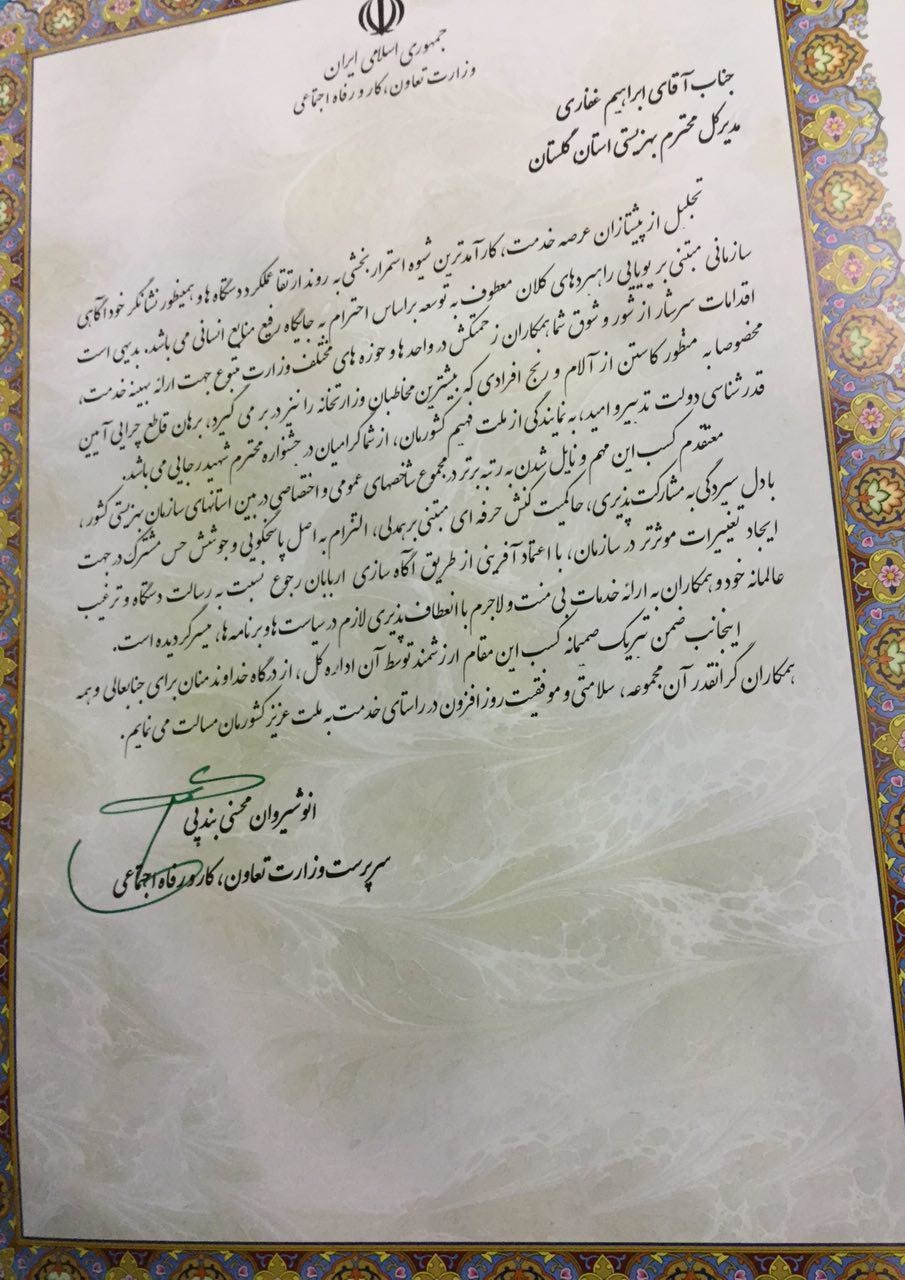 جمهوری اسلامی ایران
وزارت تعاون، کار و رفاه اجتماعی
جناب آقای ابراهیم غفاری
مدیرکل محترم بهزیستی استان گلستان
تجلیل از پیشتازان عرصه خدمت، کارآمدترین شیوه استمرار بخشی به روند ارتقا عملکرد دستگاه ها و همینطور نشانگر خودآگاهی
سازمانی مبتنی بر پویایی راهبردهای کلان معطوف به توسعه براساس احترام به جایگاه رفیع منابع انسانی می باشد. بدیهی است
اقدامات سرشار از شور و شوق شما همکاران زحمتکش در واحدها و حوزه های مختلف وزارت متبوع جهت ارائه بهینه خدمت،
مخصوصا به منظور کاستن از آلام و رنج افرادی که بیشترین مخاطبان وزارتخانه را نیز در بر می گیرد، برهان قاطع چرایی آیین
قدرشناسی دولت تدبیر و امید، به نمایندگی از ملت فهیم کشورمان، از شما گرامیان در جشنواره محترم شهید رجایی می باشد.
معتقدم کسب این مهم و نایل شدن به رتبه برتر در مجموع شاخصهای عمومی و اختصاصی در بین استانهای سازمان بهزیستی کشور،
با دل سپردگی به مشارکت پذیری، حاکمیت کنش حرفه ای مبتنی بر همدلی، التزام به اصل پاسخگویی و جوشش حس مشترک در جهت
ایجاد تغییرات موثرتر در سازمان، با اعتماد آفرینی از طریق آگاه سازی اربابان رجوع نسبت به رسالت دستگاه و ترغیب
عالمانه خود و همکاران به ارائه خدمات بی منت و لاجرم با انعطاف پذیری لازم در سیاست ها و برنامه ها، میسر گردیده است.
اینجانب ضمن تبریک صمیمانه کسب این مقام ارزشمند توسط آن اداره کل، از درگاه خداوند منان برای جنابعالی و همه
همکاران گرانقدر آن مجموعه، سلامتی و موفقیت روزافزون در راستای خدمت به ملت عزیز کشورمان مسالت می نمایم.
انوشیروان محسنی بندپی
سرپرست وزارت تعاون، کار و رفاه اجتماعی